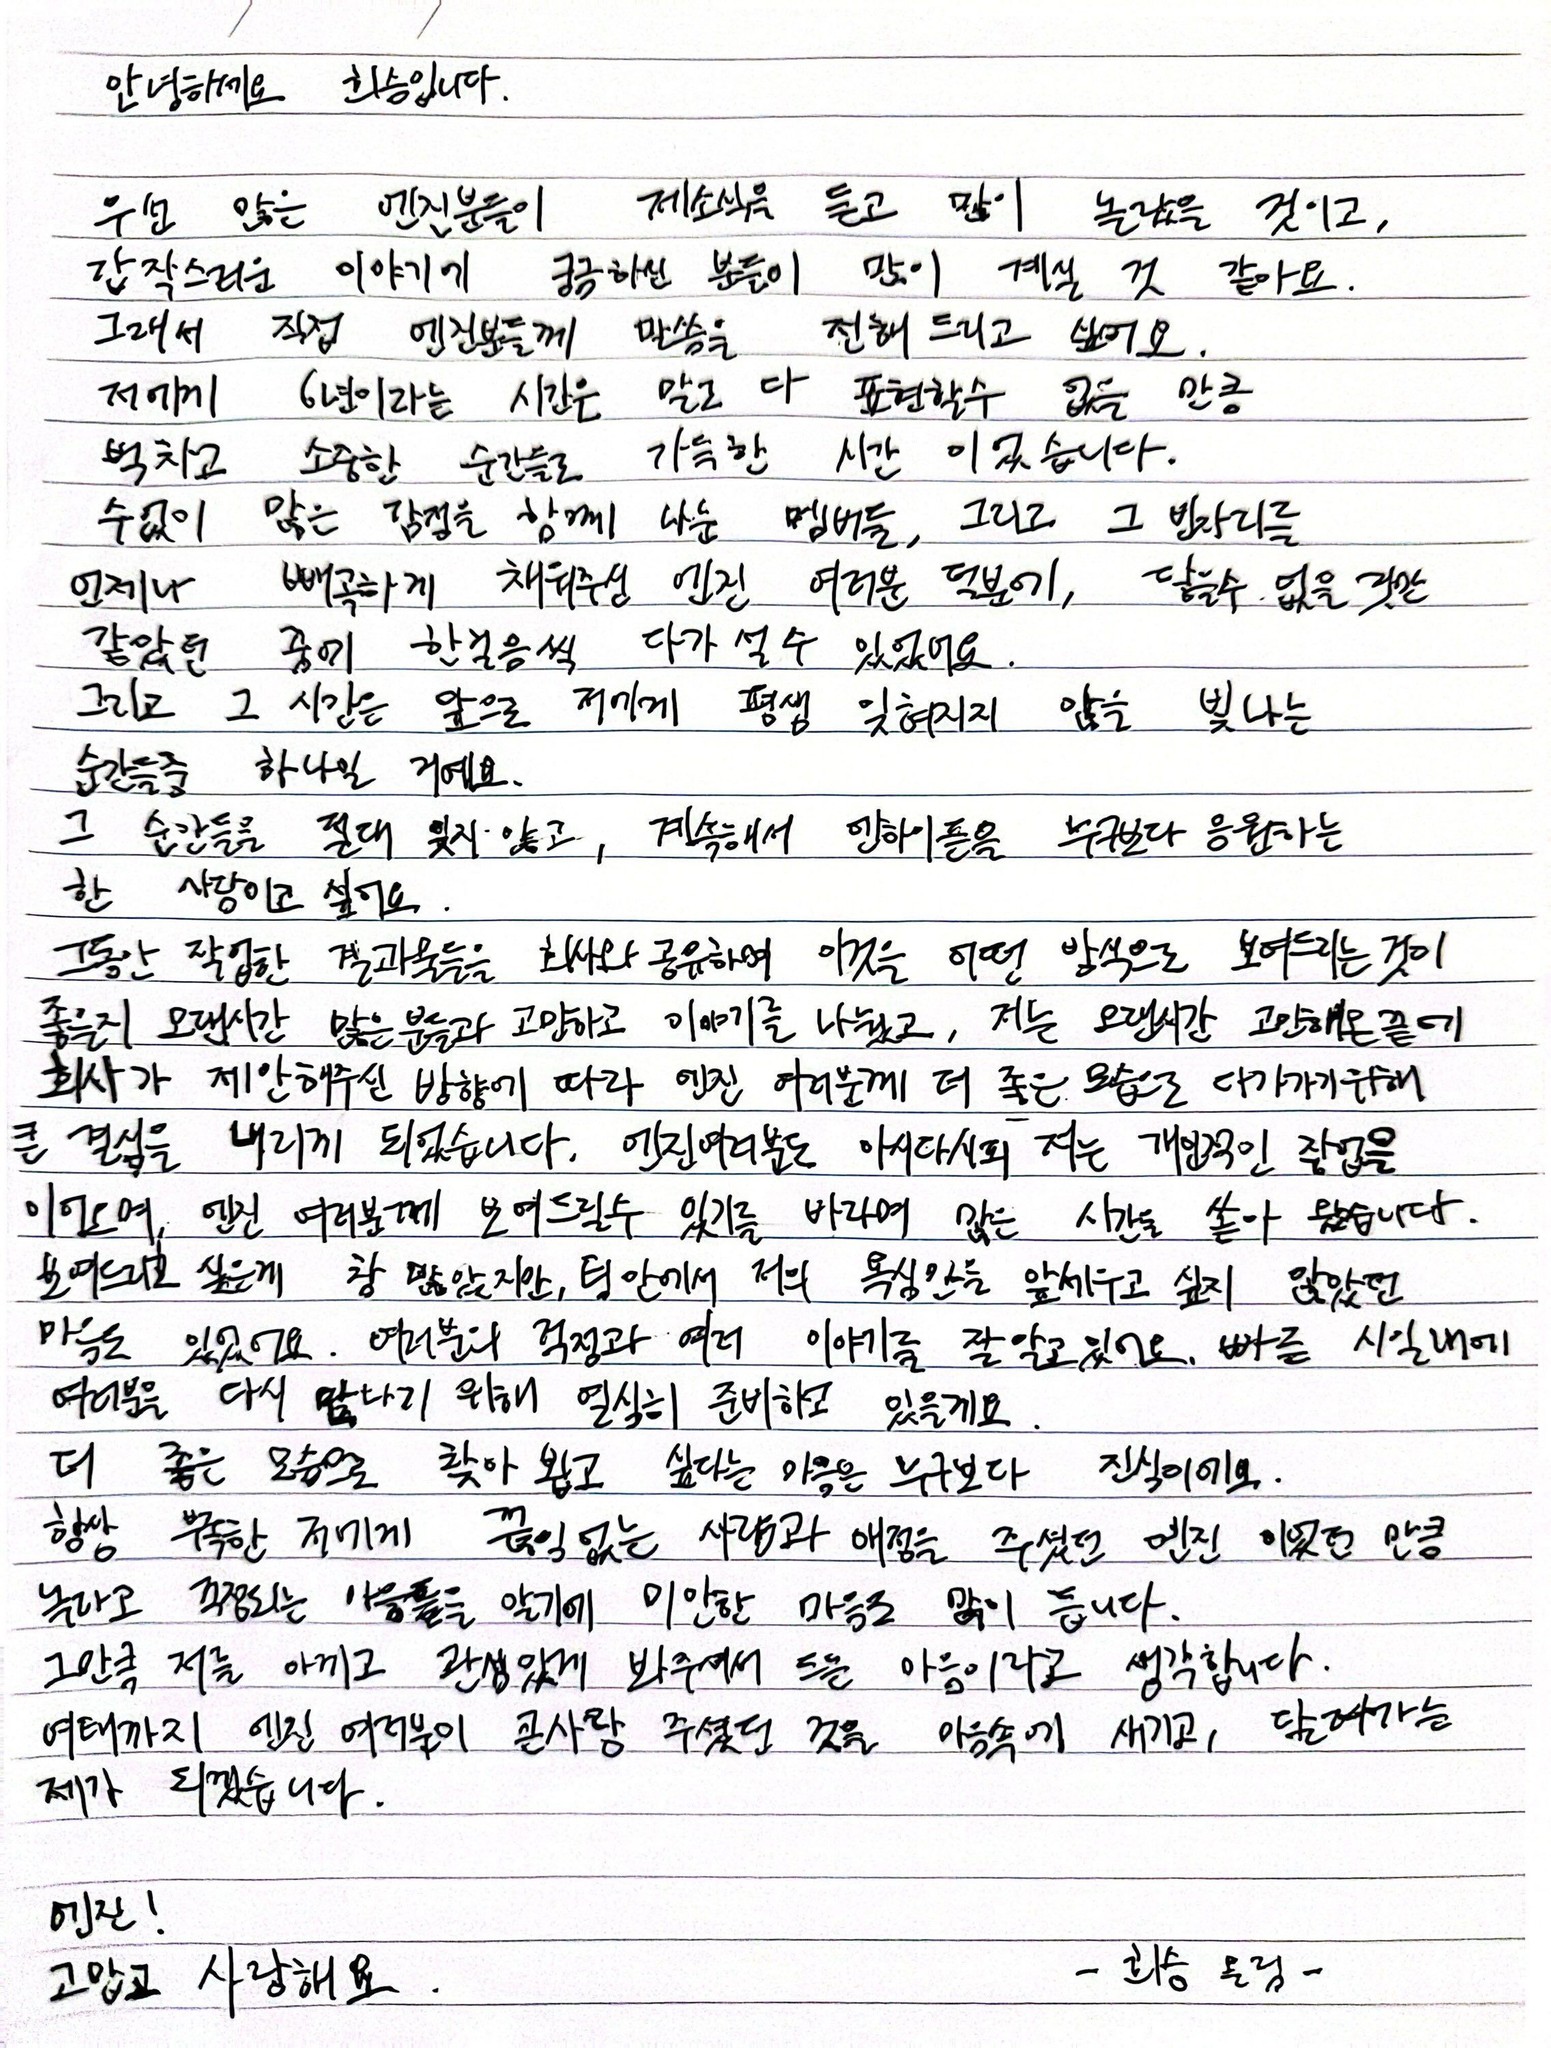 안녕하세요 희승입니다.
우선 많은 엔진분들이 제소식을 듣고 많이 놀랐을 것이고,
갑작스러운 이야기에 궁금하신 분들이 많이 계실 것 같아요.
그래서 직접 엔진분들께 말씀을 전해 드리고 싶어요.
저에게 6년이라는 시간은 말로 다 표현할수 없을 만큼
벅차고 소중한 순간들로 가득한 시간 이었습니다.
수없이 많은 감정을 함께 나눈 멤버들, 그리고 그 빈자리를
언제나 빼곡하게 채워주신 엔진 여러분 덕분에, 닿을수 없을 것만
같았던 꿈에 한걸음씩 다가 설 수 있었어요.
그리고 그 시간은 앞으로 저에게 평생 잊혀지지 않을 빛나는
순간들중 하나일 거예요.
그 순간들을 절대 잊지 않고, 계속해서 엔하이픈을 누구보다 응원하는
한 사람이고 싶어요.
그동안 작업한 결과물들을 회사와 공유하며 이것을 어떤 방식으로 보여드리는 것이
좋을지 오랜시간 많은분들과 고민하고 이야기를 나눴고, 저는 오랜시간 고민해온끝에
회사가 제안해주신 방향에 따라 엔진 여러분께 더 좋은 모습으로 다가가기위해
큰 결심을 내리게 되었습니다. 엔진여러분도 아시다시피 저는 개인적인 작업을
이어오며, 엔진 여러분께 보여드릴수 있기를 바라며 많은 시간을 쏟아 왔습니다.
보여드리고 싶은게 참 많았지만, 팀 안에서 저의 욕심만을 앞세우고 싶지 않았던
마음도 있었어요. 여러분의 걱정과 여러 이야기를 잘 알고 있어요. 빠른 시일내에
여러분을 다시 만나기 위해 열심히 준비하고 있을게요.
더 좋은 모습으로 찾아 뵙고 싶다는 마음은 누구보다 진심이에요.
항상 부족한 저에게 끊임없는 사랑과 애정을 주셨던 엔진 이었던 만큼
놀라고 걱정되는 마음들을 알기에 미안한 마음도 많이 듭니다.
그만큼 저를 아끼고 관심있게 봐주셔서 드는 마음이라고 생각합니다.
여태까지 엔진 여러분이 큰사랑 주셨던 것을 마음속에 새기고, 달려가는
제가 되겠습니다.
엔진!
고맙고 사랑해요.
- 희승 올림 -